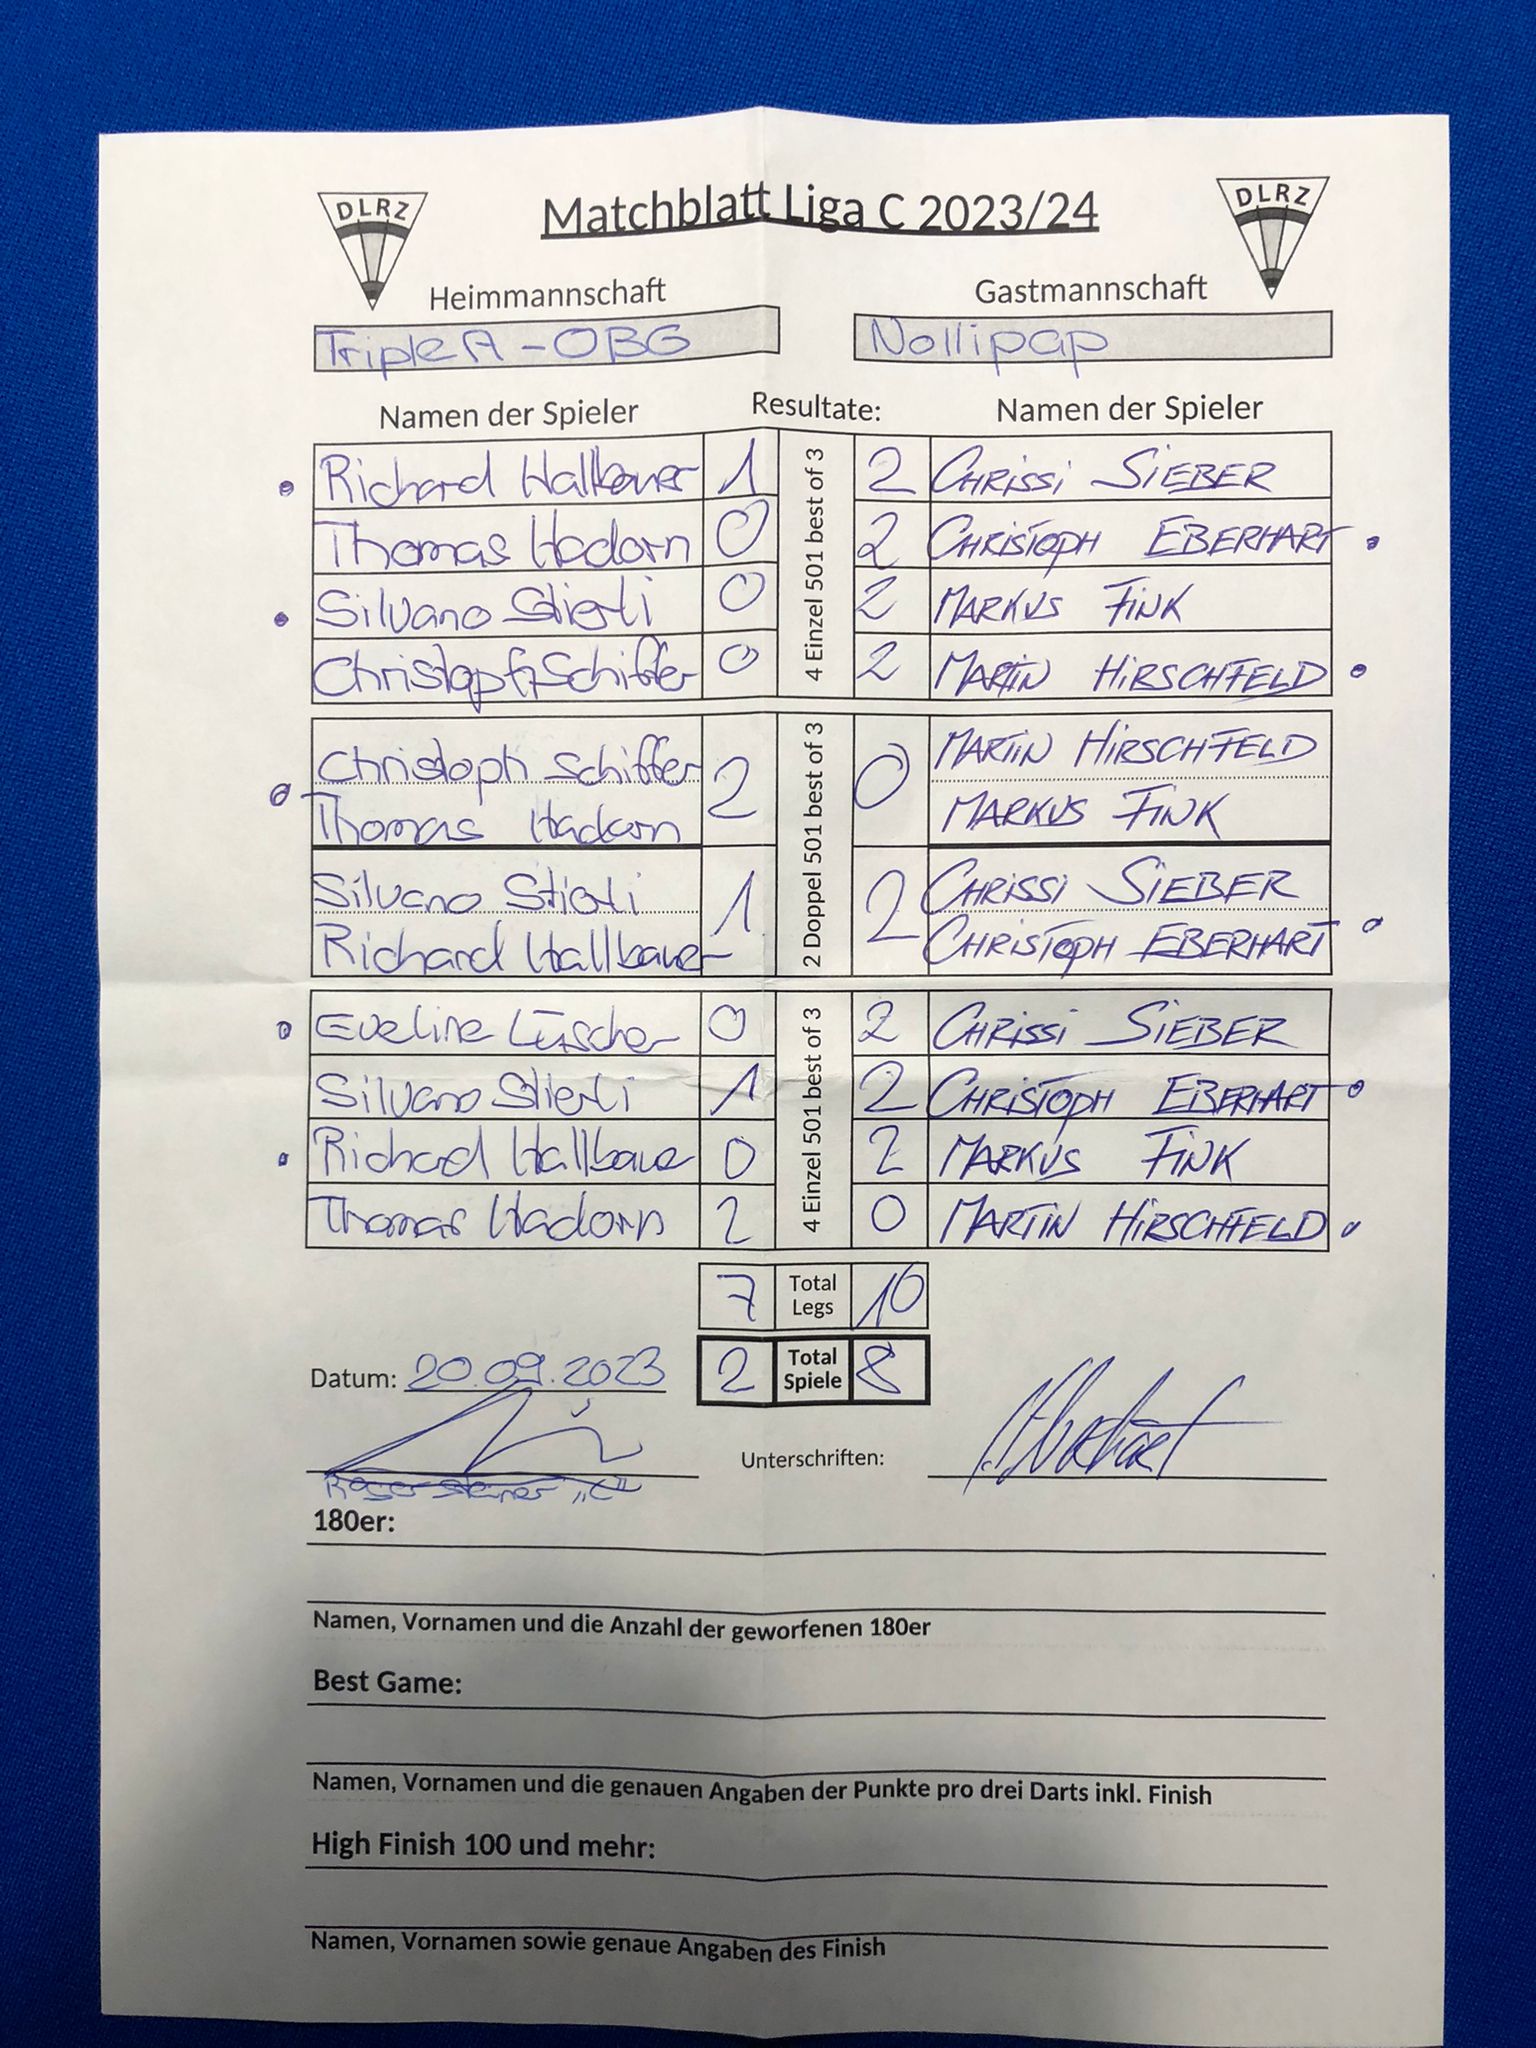 DLRZ Matchblatt Liga C 2023/24 DLRZ
Heimmannschaft Gastmannschaft
Triple A - OBG Nollipap
Namen der Spieler Resultate: Namen der Spieler
Richard Hallbauer 1 2 CHRISSI SIEBER
Thomas Hadorn 0 2 CHRISTOPH EBERHART
Silvano Stierli 0 2 MARKUS FINK
Christoph Schiffer 0 2 MARTIN HIRSCHFELD
4 Einzel 501 best of 3
Christoph Schiffer 2 0 MARTIN HIRSCHFELD
Thomas Hadorn MARKUS FINK
Silvano Stierli 1 2 CHRISSI SIEBER
Richard Hallbauer CHRISTOPH EBERHART
2 Doppel 501 best of 3
Eveline Lüscher 0 2 CHRISSI SIEBER
Silvano Stierli 1 2 CHRISTOPH EBERHART
Richard Hallbauer 0 2 MARKUS FINK
Thomas Hadorn 2 0 MARTIN HIRSCHFELD
4 Einzel 501 best of 3
7 Total Legs 10
Datum: 20.09.2023 2 Total Spiele 8
Unterschriften:
Roger Steiner „C"
180er:
Namen, Vornamen und die Anzahl der geworfenen 180er
Best Game:
Namen, Vornamen und die genauen Angaben der Punkte pro drei Darts inkl. Finish
High Finish 100 und mehr:
Namen, Vornamen sowie genaue Angaben des Finish